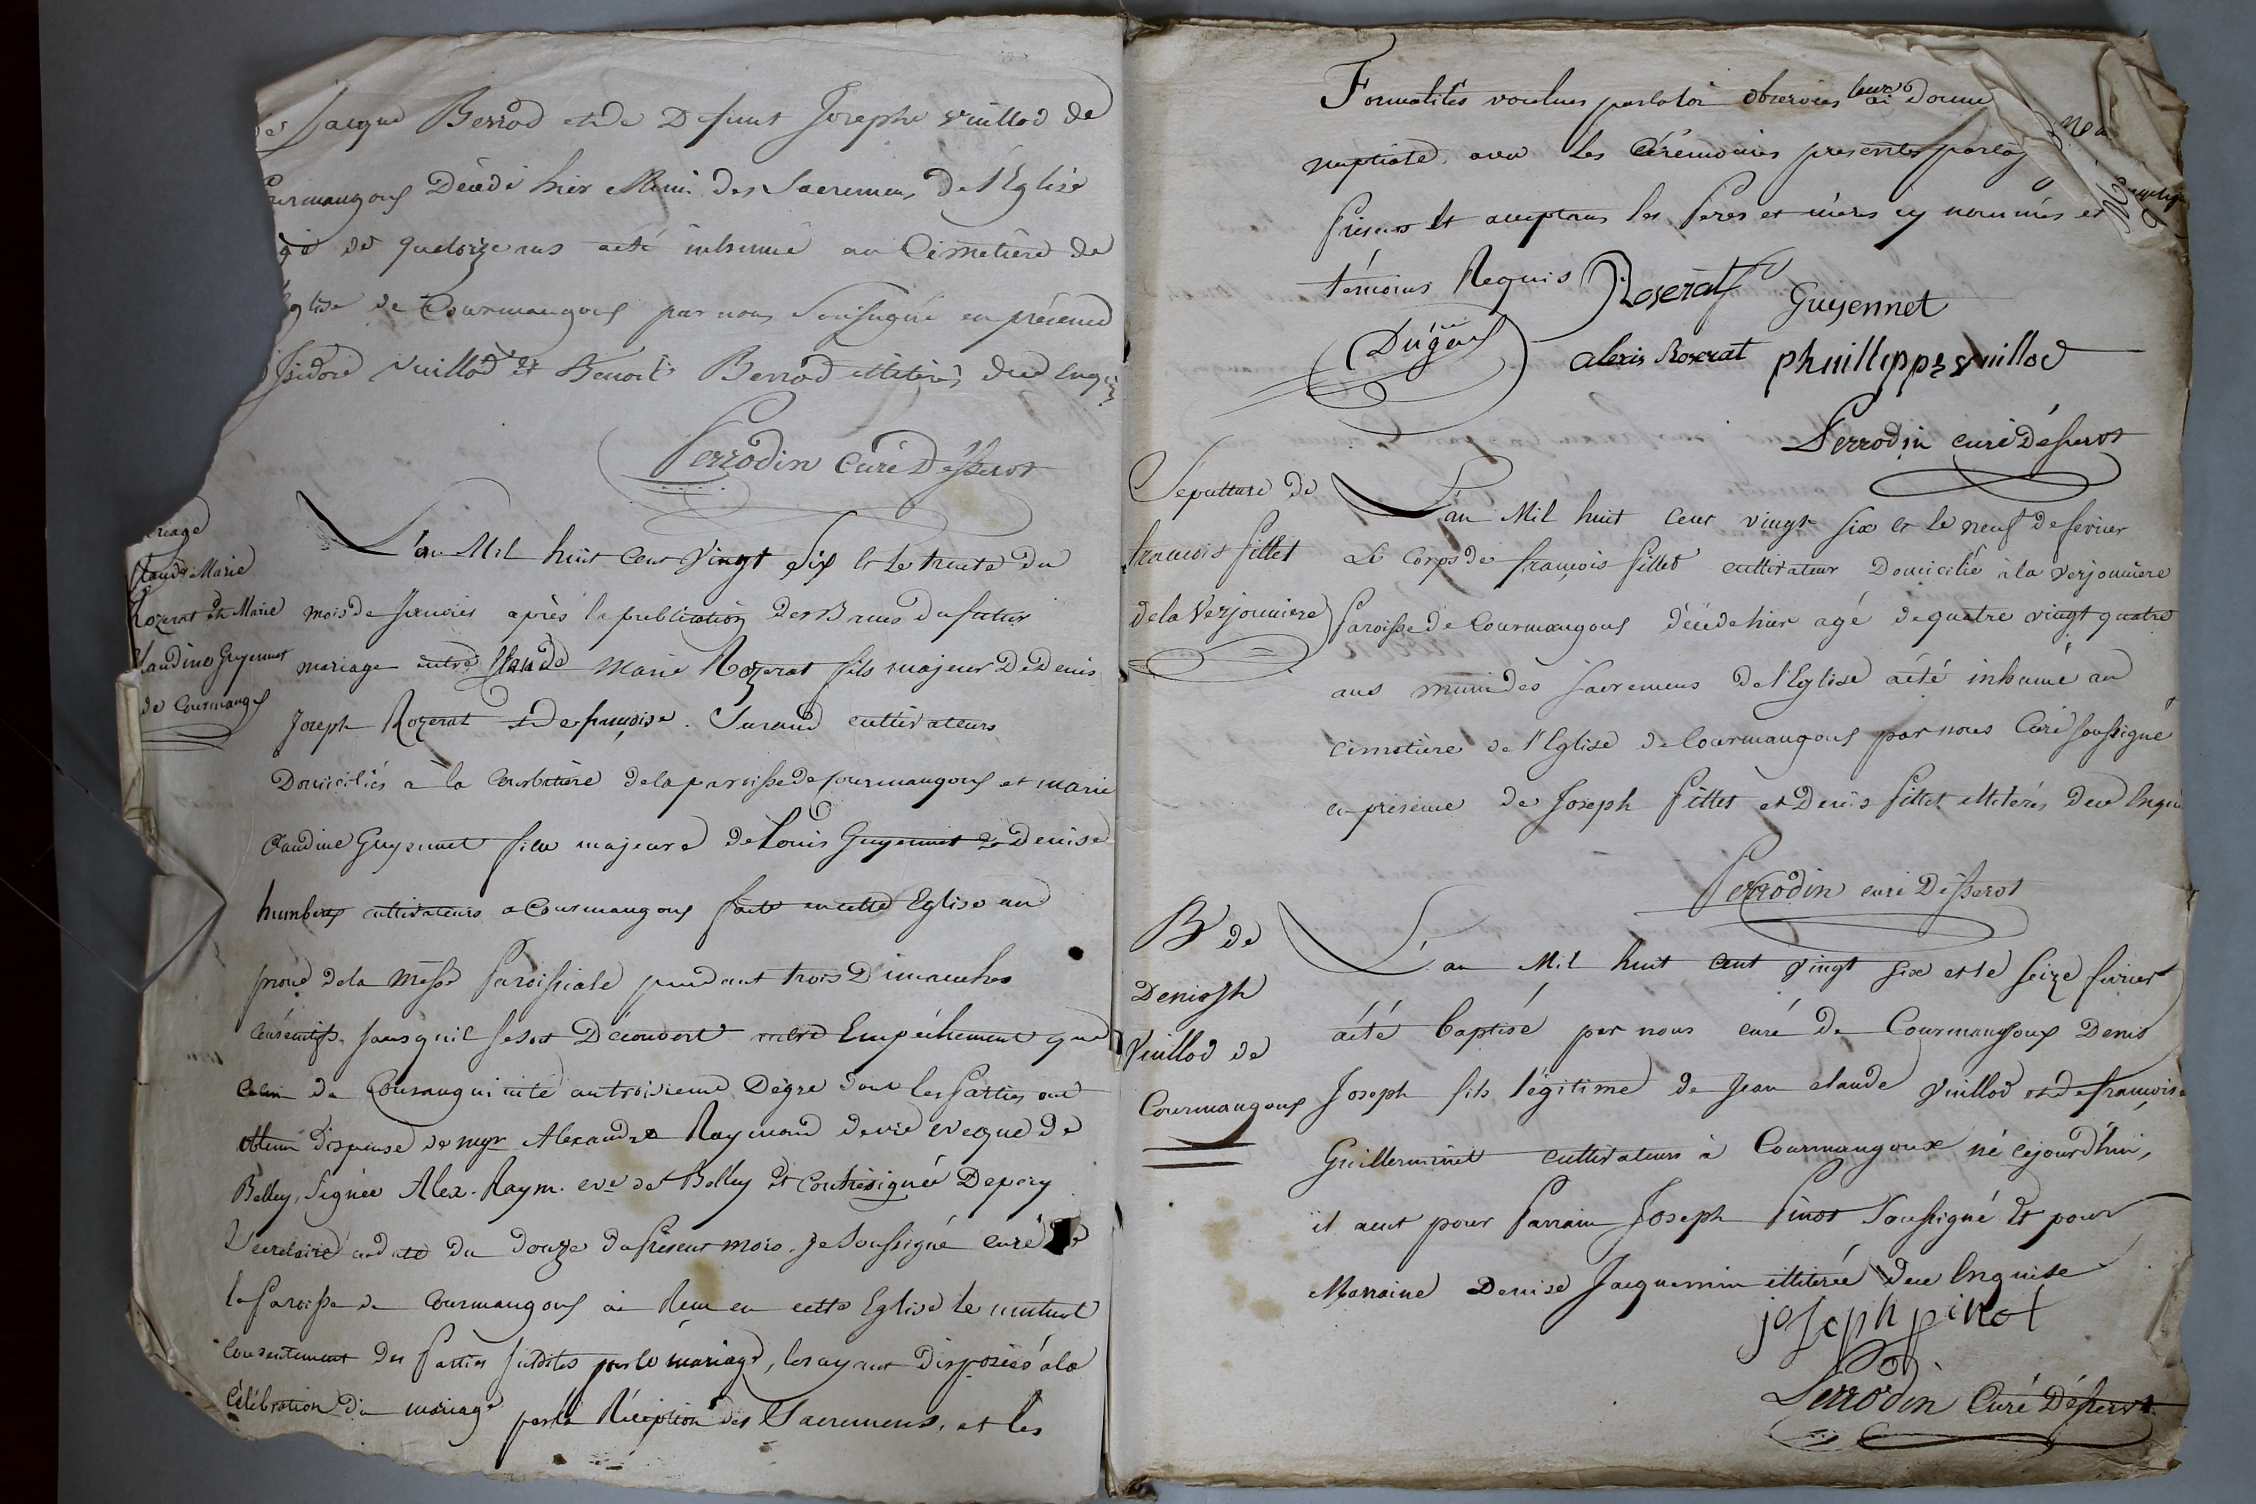 Jacque Berrod et de Defunt Josephe Vuillod de
Courmangoux Décédé hier Muni des Sacremens De l'Eglise
agé de quatorze ans aeté inhumé au Cimetière de
l'Eglise de Courmangoux par nous Soussigné en présence
d'Isidore Vuillod et Benoit Berrod illiterés due Enquis
Perrodin Curé Desservt
Mariage
Claude Marie
Rozerat et Marie
Claudine Guyennet
de Courmangx
L'an Mil huit Cent Vingt Six et le trente du
mois de Janvier après la publication des Bans du futur
mariage entre Claude Marie Rozerat fils majeur De Denis
Joseph Rozerat et de françoise Durand cultivateurs
Domiciliés à la Courbatière de la paroisse de Courmangoux et marie
Claudine Guyennet fille majeure de Louis Guyennet et Denise
humbert cultivateurs a Courmangoux faite en cette Eglise au
prone de la Messe Paroissiale pendant trois Dimanches
Consécutifs, sans qu'il se soit Découvert autre Empêchement que
Celui de Consanguinité au troisieme Dégré dont les Parties ont
obtenu dispense de mgr Alexandre Raymond devie evêque de
Belley, Signée Alex. Raym. eve. de Belley et Contresignée Depery
Secretaire endate du douze du présent mois. je Soussigné curé de
la Paroisse de Courmangoux ai Reçu en cette Eglise le mutuel
Consentement des Parties susdites pour le mariage, les ayant Disposées à la
Célébration du mariage par la Réception des Sacremens, et les
Formalités voulues par la loi observées leur ai Donné
nuptiale avec les Cérémonies presentes par
Présens et acceptans les Peres et mères cy nommés et
témoins Requis Roserat Guyennet
Dugas alexis Roserat phuillippe vuillod
Perrodin curé Desservt
Sepulture de
francois fillet
de la Verjonniere
L'an Mil huit Cent vingt six et le neuf de fevrier
Le Corps de françois fillet cultivateur Domicilié à la Verjonniere
Paroisse de Courmangoux décédé hier agé de quatre vingt quatre
ans muni des sacremens de l'Eglise aété inhumé au
cimetière de l'Eglise de Courmangoux par nous Curé soussigné
en présence de Joseph fillet et Denis fillet illiterés due Enquis
Perrodin curé Desservt
B de
Denis Jh
Vuillod de
Courmangoux
L'an Mil huit Cent Vingt Six et le Seize fevrier
aété baptisé par nous curé de Courmangoux Denis
Joseph fils légitime de Jean claude Vuillod et de françoise
Guillerminet cultivateurs à Courmangoux né cejourd'hui,
il aeut pour Parrain Joseph Pinot Soussigné et pour
Marraine Denise Jacquemin illiterée due Enquise
joseph pinot
Perrodin Curé Desservt